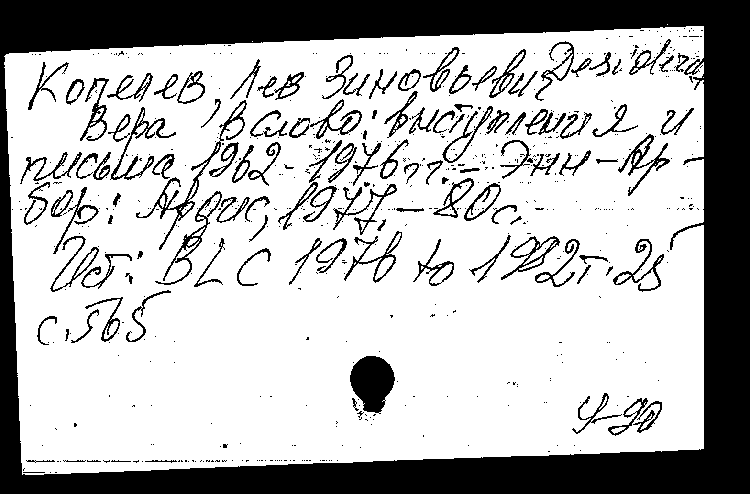 Копелев, Лев Зиновьевич Desiderat
Вера в слово: выступления и
письма 1962-1976 гг. - Энн-Ар-
бор: Ардис, 1977. - 80 с.
Ист: BLC 1976 to 1982 т. 25
с. 565